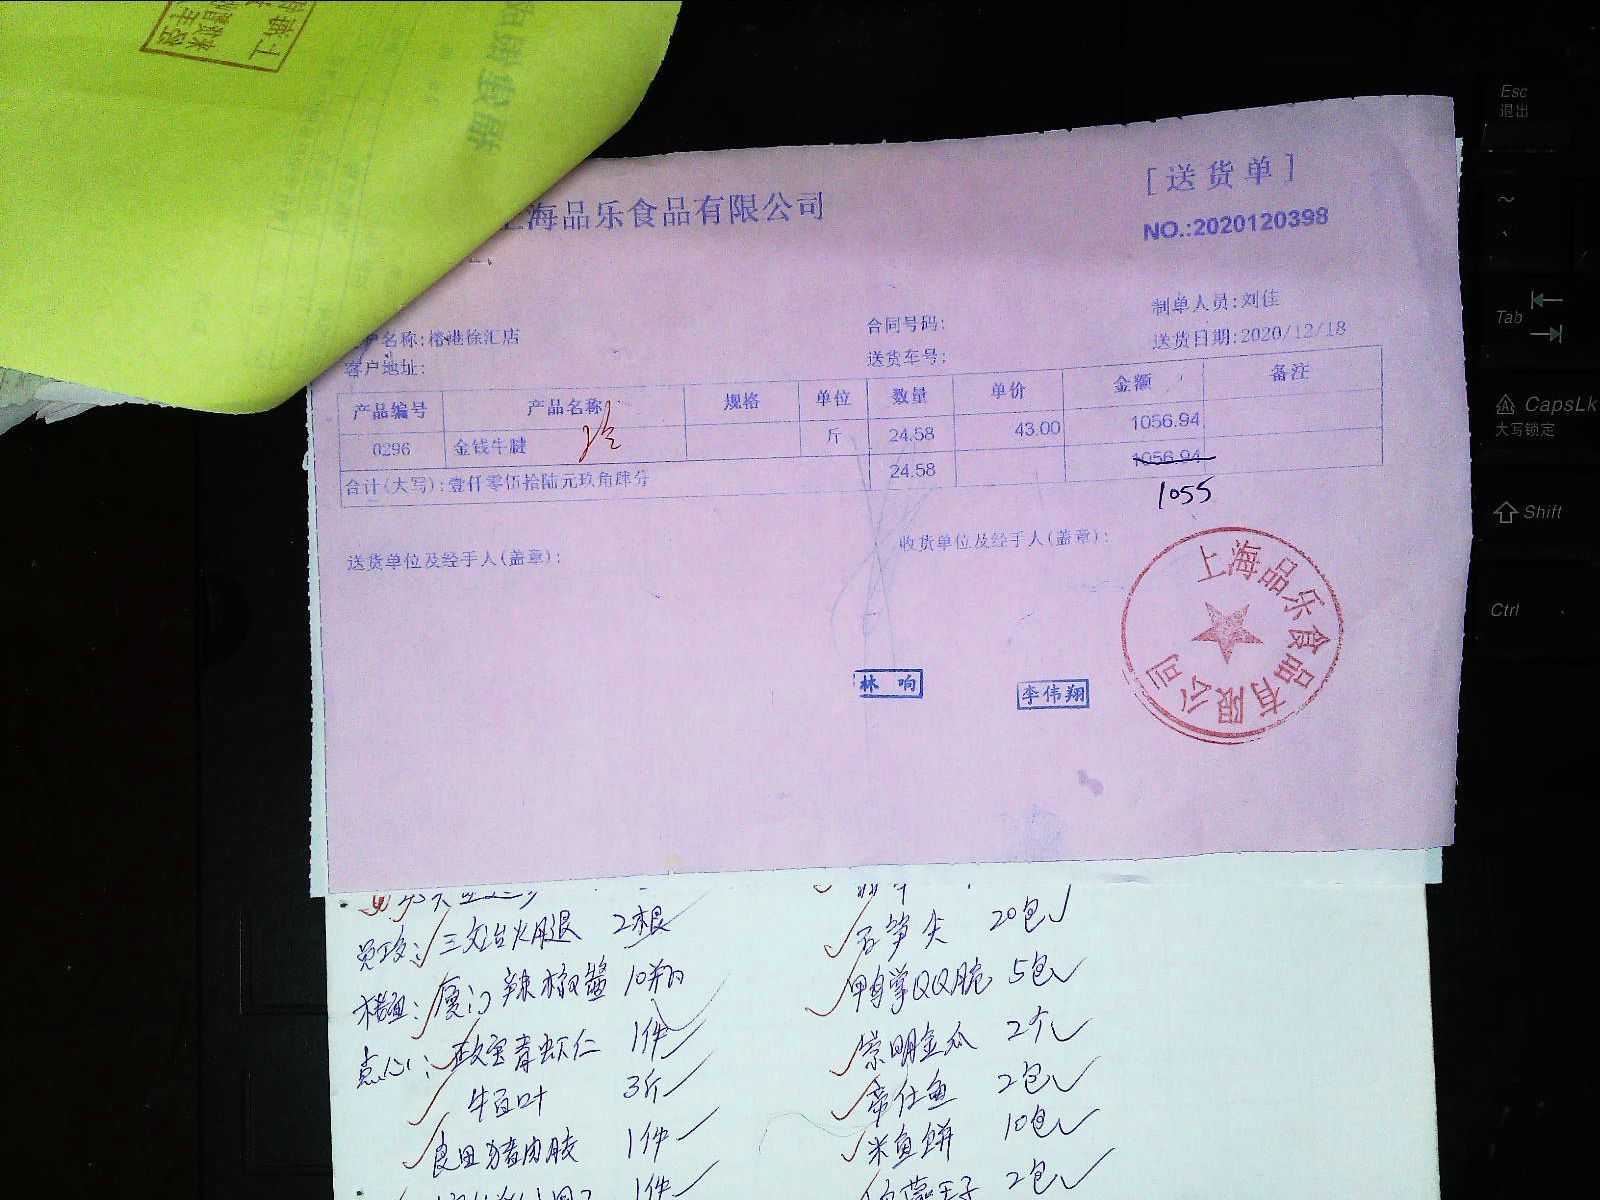 上海品乐食品有限公司
[送货单]
NO.:2020120398
制单人员:刘佳
户名称:椿港徐汇店
合同号码:
送货日期:2020/12/18
客户地址:
送货车号:
产品编号 产品名称 规格 单位 数量 单价 金额 备注
0296 金钱牛腱 斤 24.58 43.00 1056.94
合计(大写):壹仟零伍拾陆元玖角肆分 24.58 1056.94
1055
送货单位及经手人(盖章):
收货单位及经手人(盖章):
上海品乐食品有限公司
林 响
李伟翔
三文治火腿 2根
厦门辣椒酱 10瓶
点心: 青虾仁 1件
牛百叶 3斤
良田猪肉胶 1件
1件
笋尖 20包
鸭掌QQ脆 5包
崇明金瓜 2个
帝仕鱼 2包
米鱼饼 10包
2包
Esc
退出
~
Tab
CapsLk
大写锁定
Shift
Ctrl